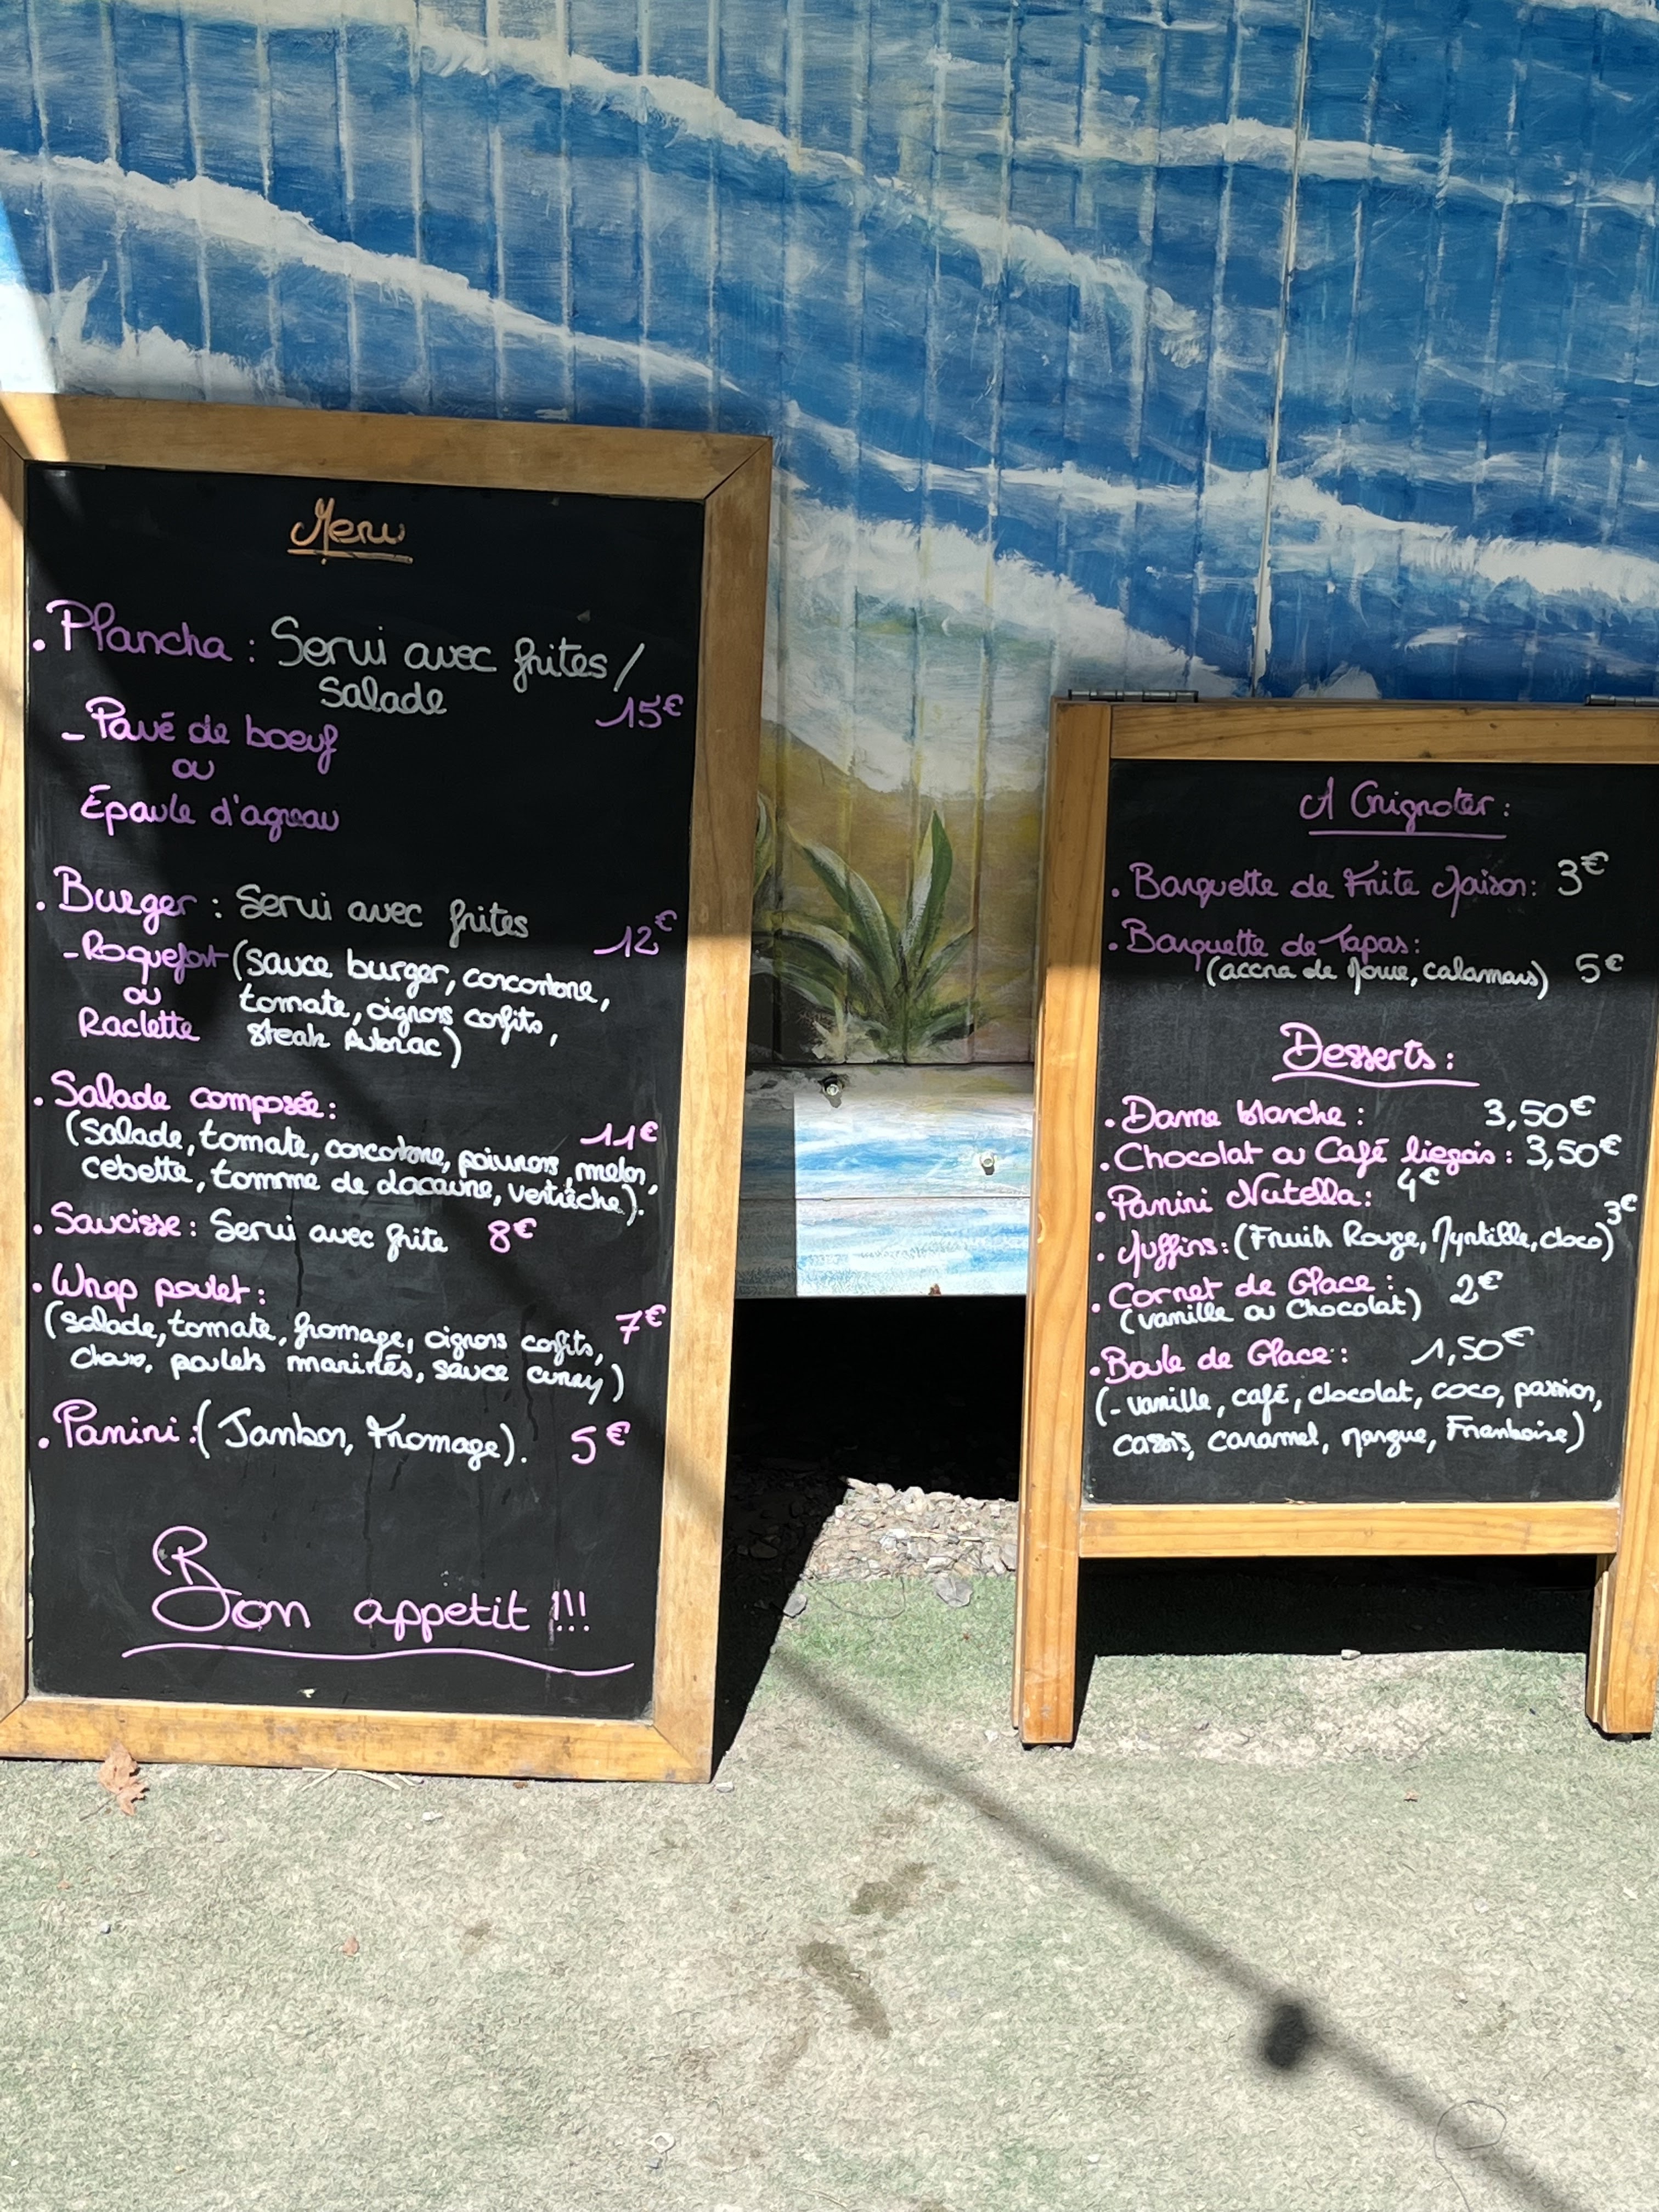 Menu
. Plancha : Servi avec frites /
salade
15€
- Pavé de boeuf
ou
Épaule d'agneau
. Burger : Servi avec frites
12€
- Roquefort (sauce burger, concombre,
ou
tomate, oignons confits,
Raclette
steak Aubrac)
. Salade composée :
11€
(salade, tomate, concombre, poivrons, melon,
cebette, tomme de lacaune, ventrèche).
. Saucisse : Servi avec frite 8€
. Wrap poulet :
7€
(salade, tomate, fromage, oignons confits,
choux, poulets marinés, sauce curry)
. Panini : (Jambon, Fromage). 5€
Bon appetit !!!
A Grignoter :
. Barquette de Frite Maison : 3€
. Barquette de Tapas :
(accra de Morue, calamars) 5€
Desserts :
. Dame blanche : 3,50€
. Chocolat ou Café liegois : 3,50€
. Panini Nutella : 4€
. Muffins : (Fruits Rouge, Myrtille, choco) 3€
. Cornet de Glace : 2€
(vanille ou Chocolat)
. Boule de Glace : 1,50€
(- vanille, café, chocolat, coco, passion,
cassis, caramel, Mangue, Framboise)